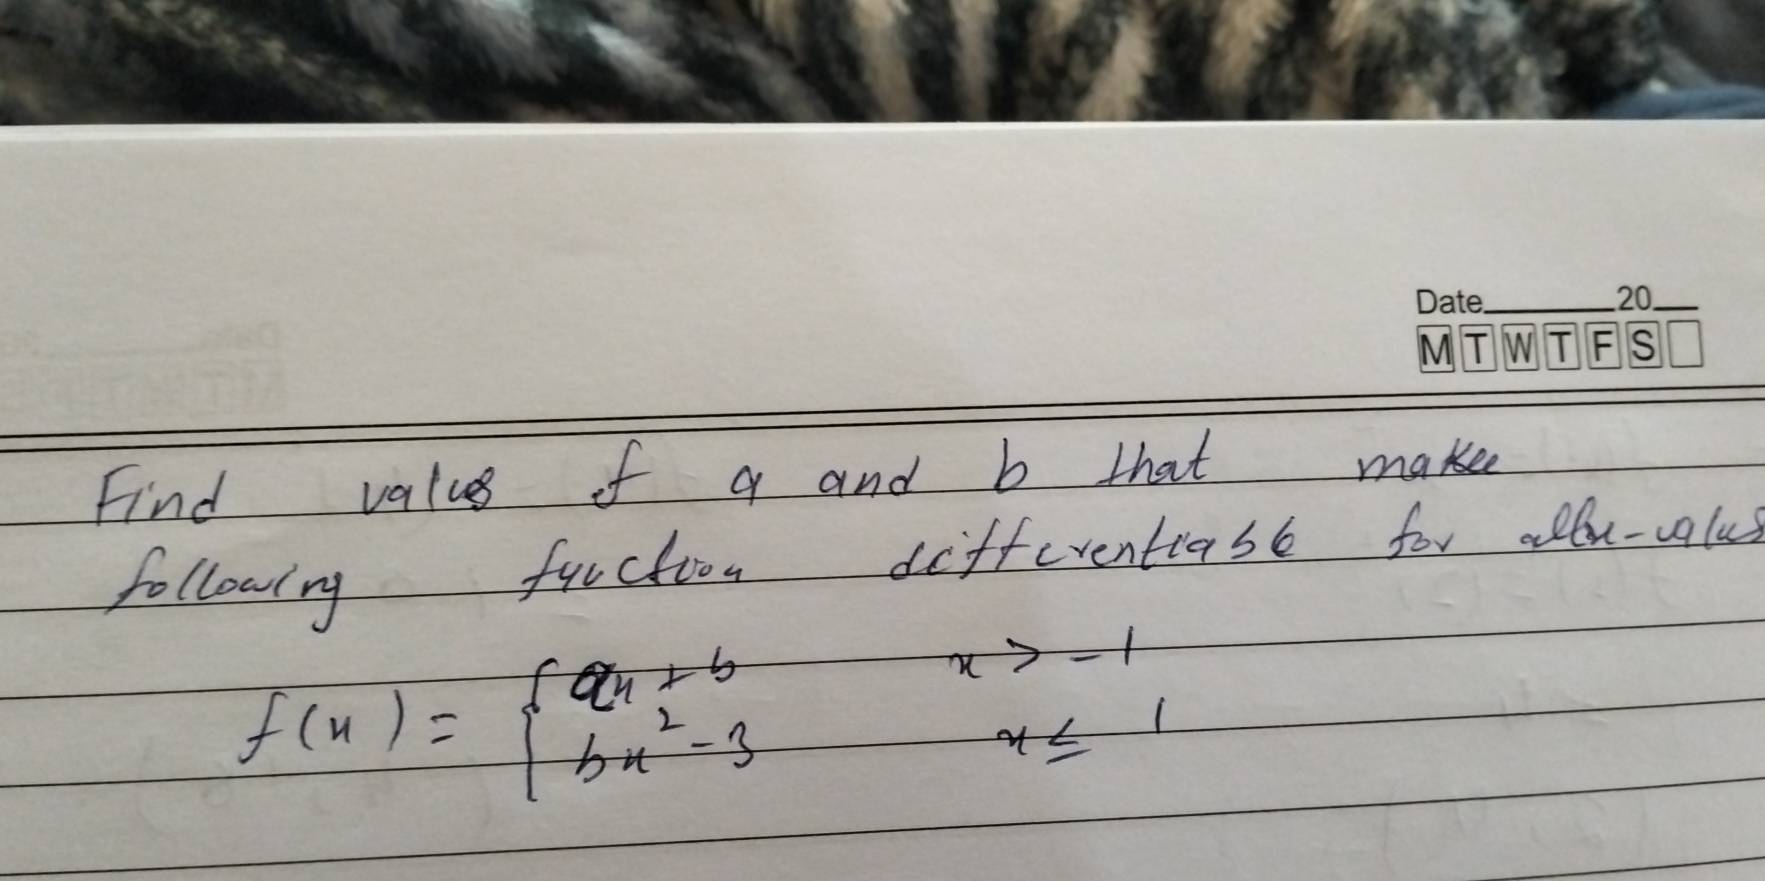 Date 20
M T W T F S
Find values of a and b that makes
following function differentiable for all x-values
f(x) = { ax + b x > -1
bx² - 3 x ≤ 1